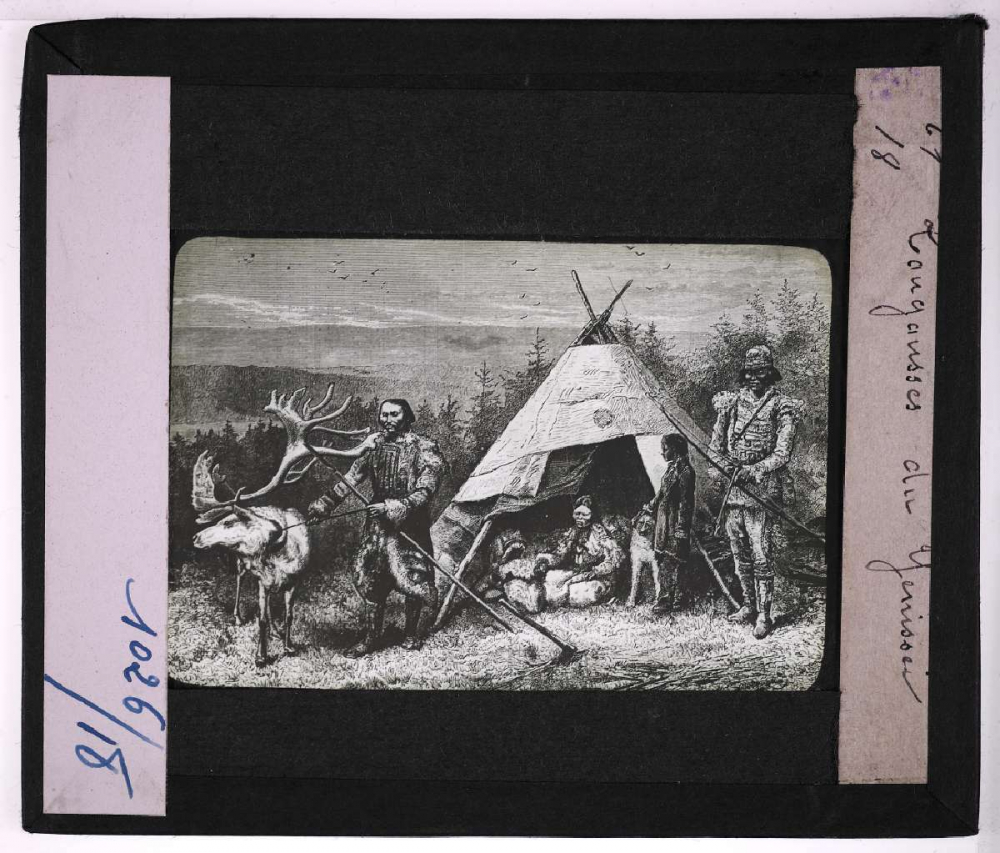 1026/18
61
18
Tougousses du Yenisseï